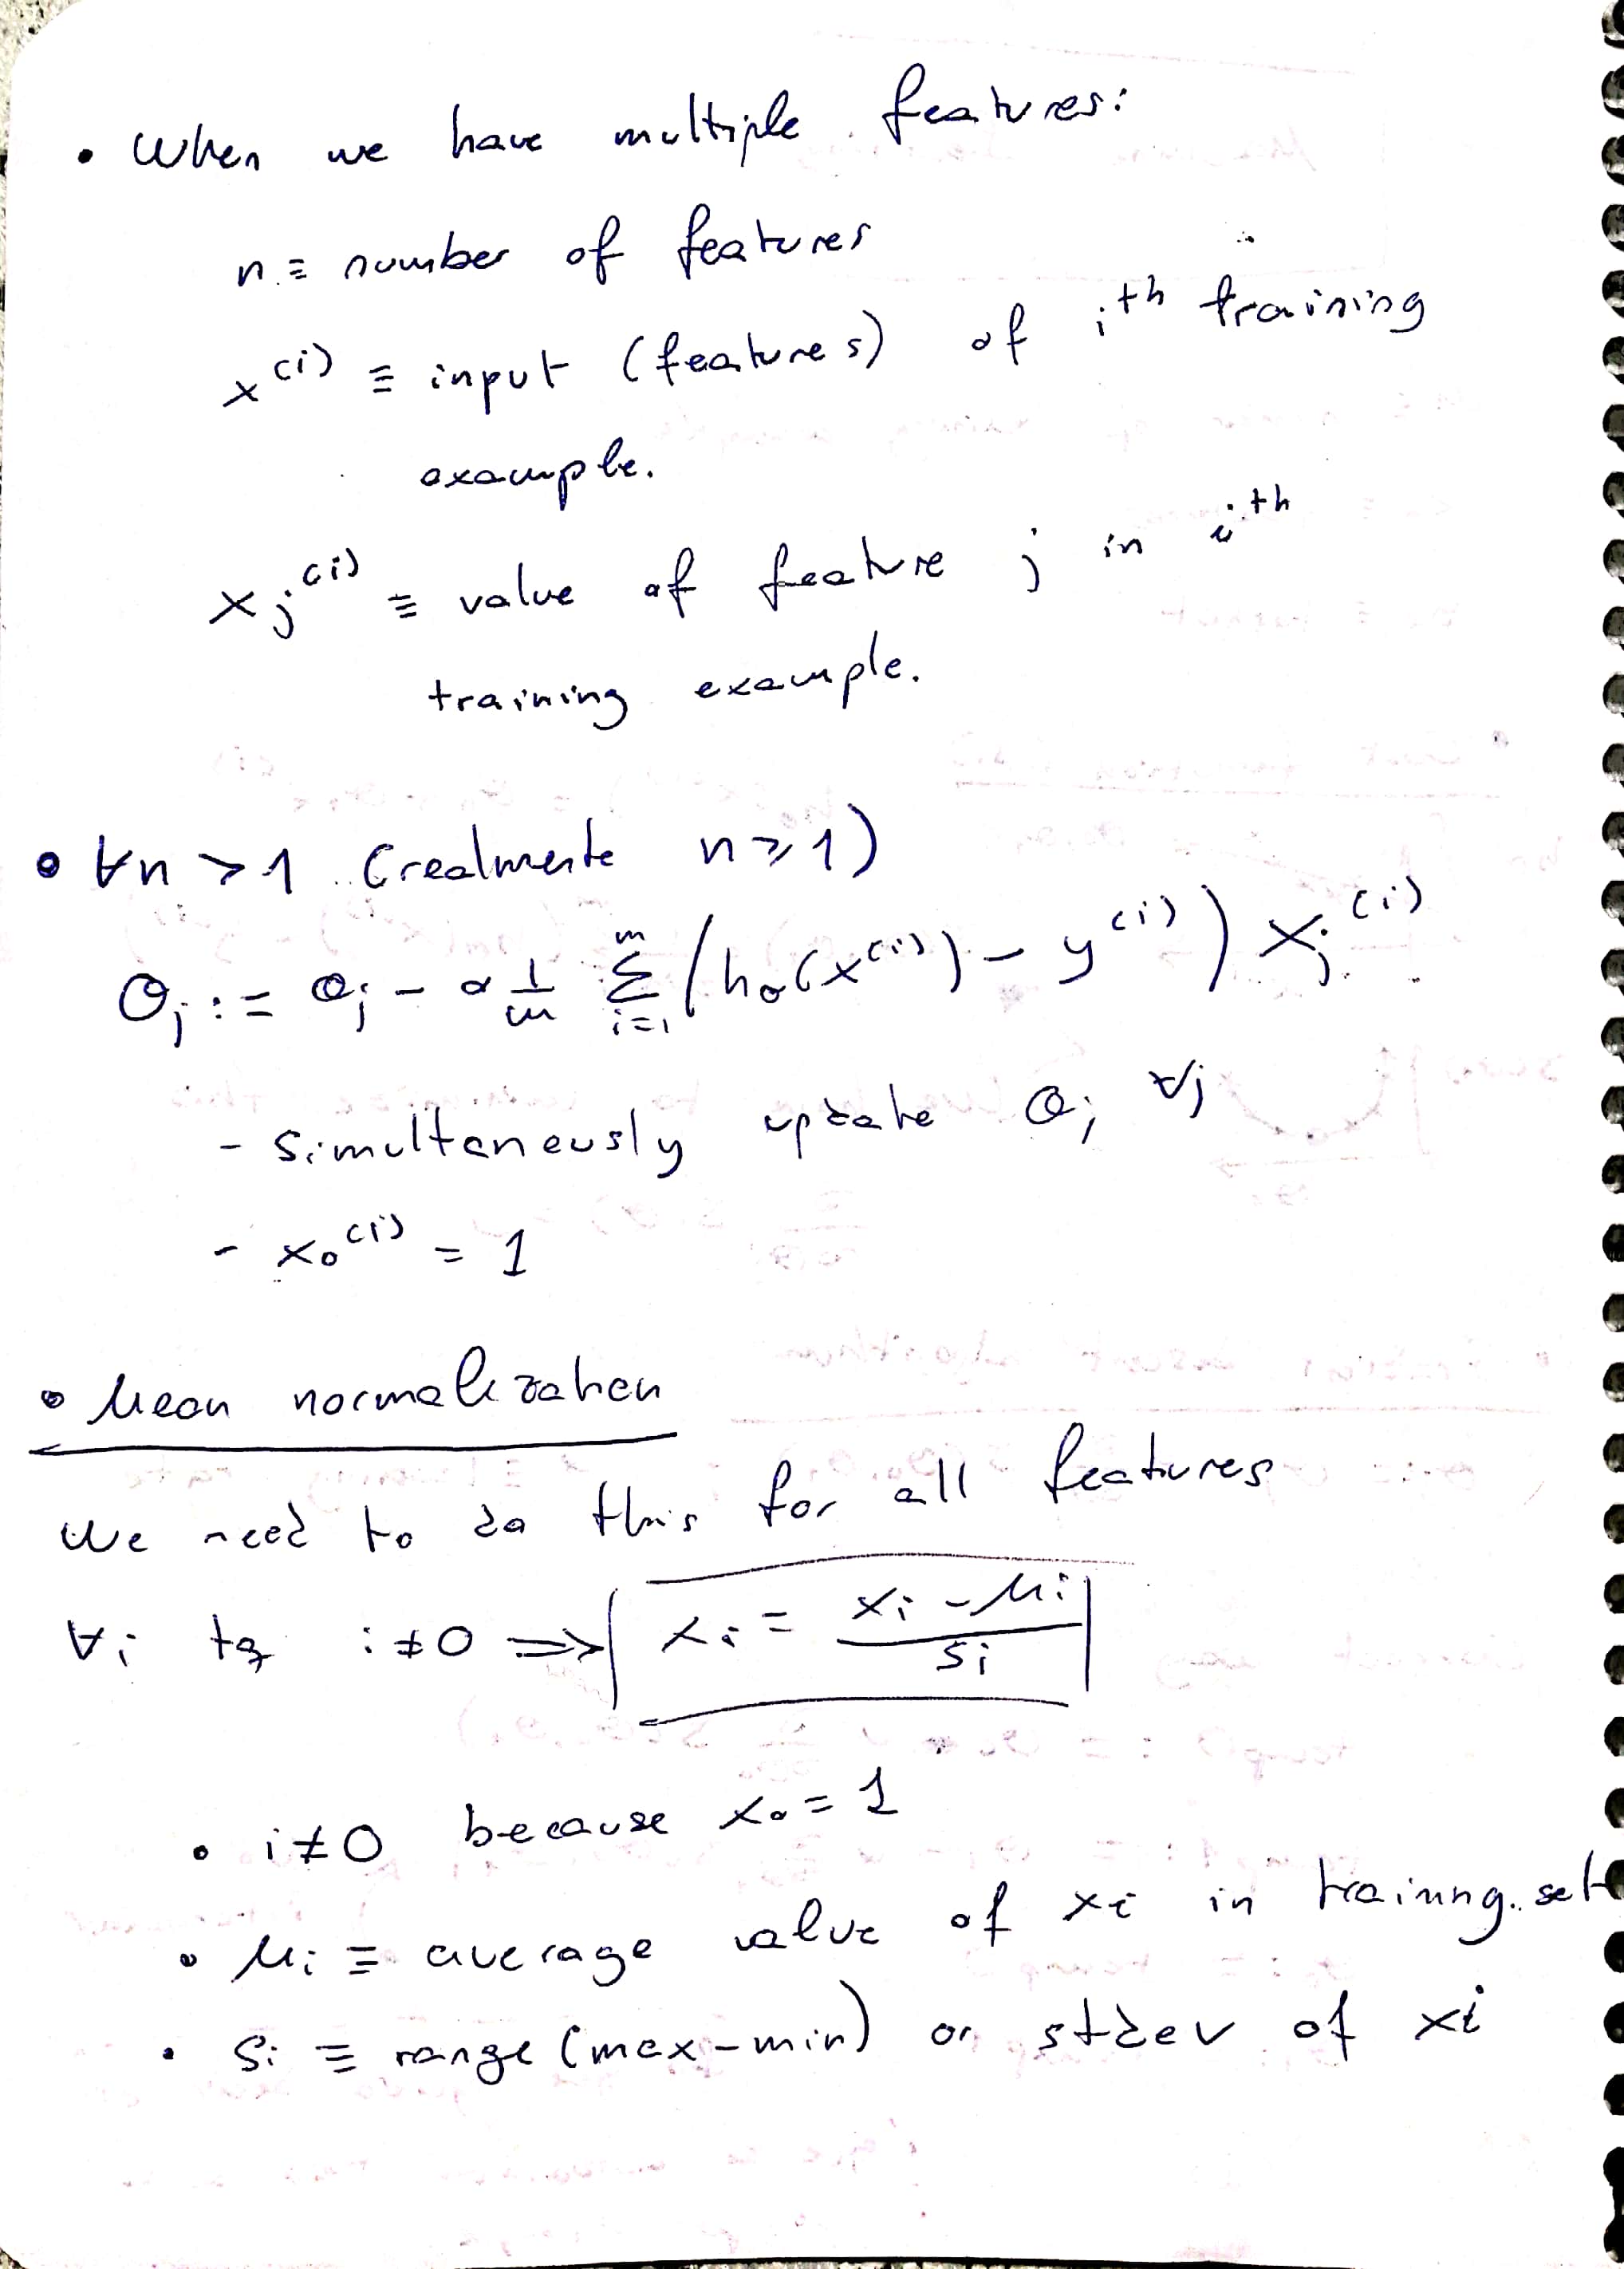 • When we have multiple features:
n ≡ number of features
x^(i) ≡ input (features) of i^th training
example.
x_j^(i) ≡ value of feature j in i^th
training example.
• ∀n > 1 (realmente n ≥ 1)
θ_j := θ_j - α 1/m Σ_{i=1}^{m} (h_θ(x^(i)) - y^(i)) x_j^(i)
- simultaneously update θ_j ∀j
- x_0^(i) = 1
• Mean normalization
We need to do this for all features
∀i tq i ≠ 0 ⟹ x_i = (x_i - μ_i) / s_i
• i ≠ 0 because x_0 = 1
• μ_i ≡ average value of x_i in training set
• s_i ≡ range (max - min) or stdev of x_i